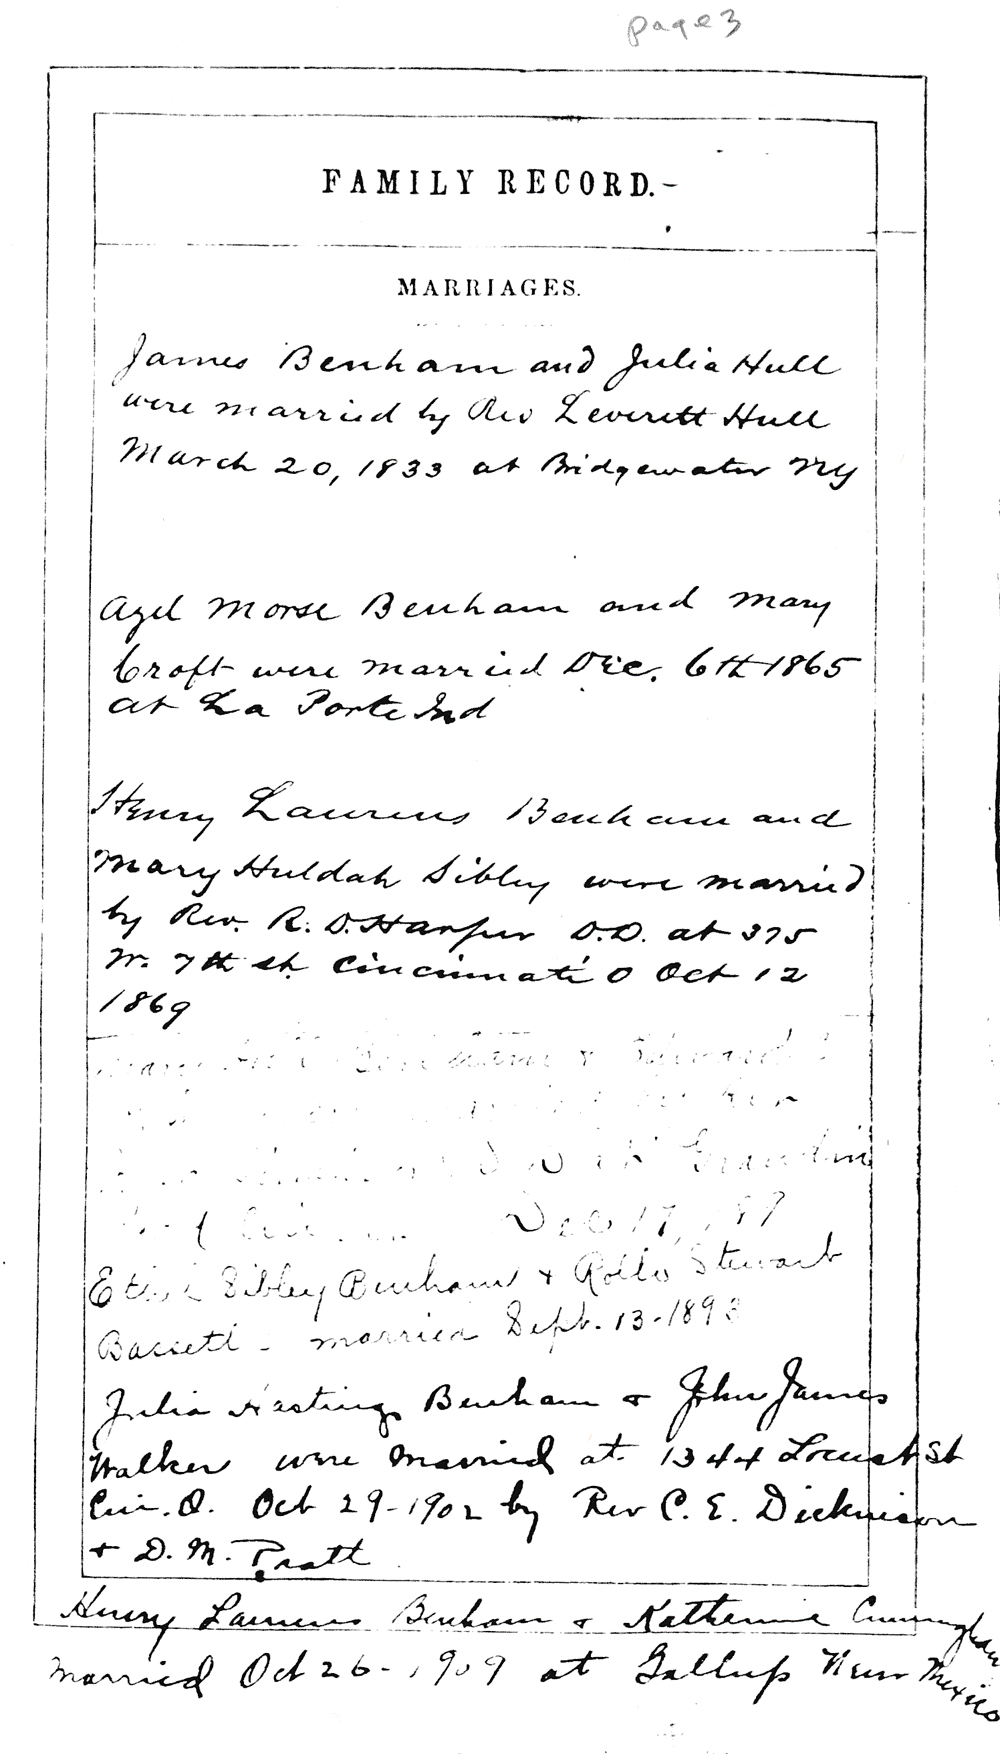 page 3
FAMILY RECORD.-
MARRIAGES.
James Benham and Julia Hull
were married by Rev Leverett Hull
March 20, 1833 at Bridgewater NY
Azel Morse Benham and Mary
Croft were married Dec. 6th 1865
at La Porte Ind
Henry Laurens Benham and
Mary Huldah Sibley were married
by Rev. R. D. Harper D.D. at 375
W. 7th st. Cincinnati O Oct 12
1869
&
Dec 17,
Sibley Benham & Rollo Stewart
Bassett - married Sept. 13-1893
Julia Hastings Benham & John James
Walker were married at 1344 Locust St
Cin. O. Oct 29-1902 by Rev C. E. Dickinson
& D. M. Pratt
Henry Laurens Benham & Katherine Cunningham
married Oct 26-1909 at Gallup New Mexico